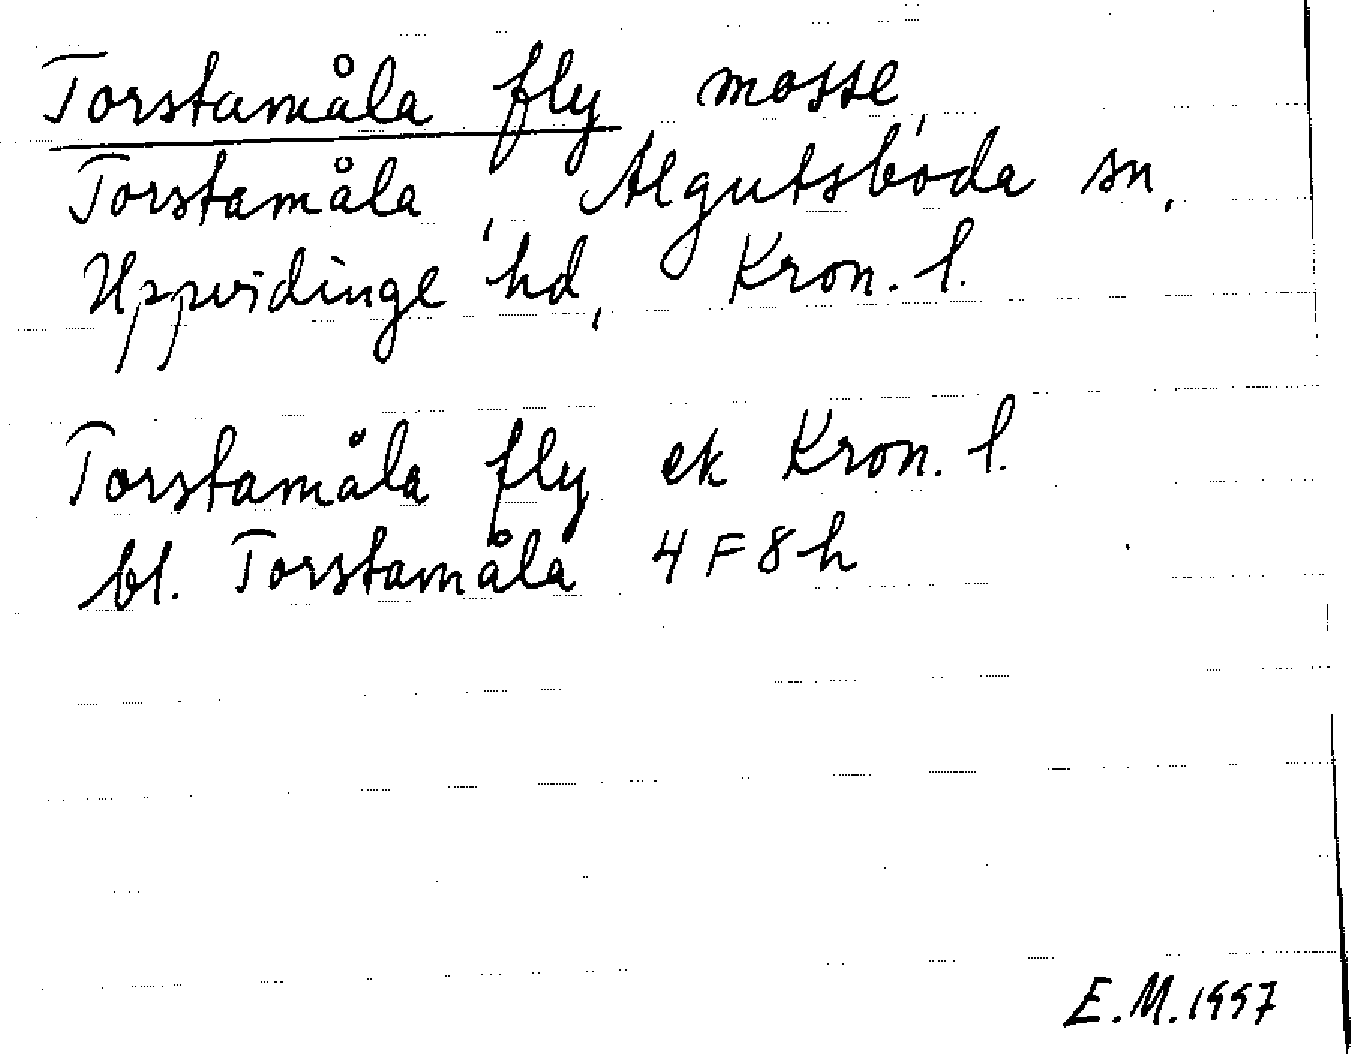 Torstamåla fly mosse,
Torstamåla, Algutsboda sn,
Uppvidinge hd, Kron. l.
Torstamåla fly ek Kron. l.
bl. Torstamåla 4F8h
E.M. 1997